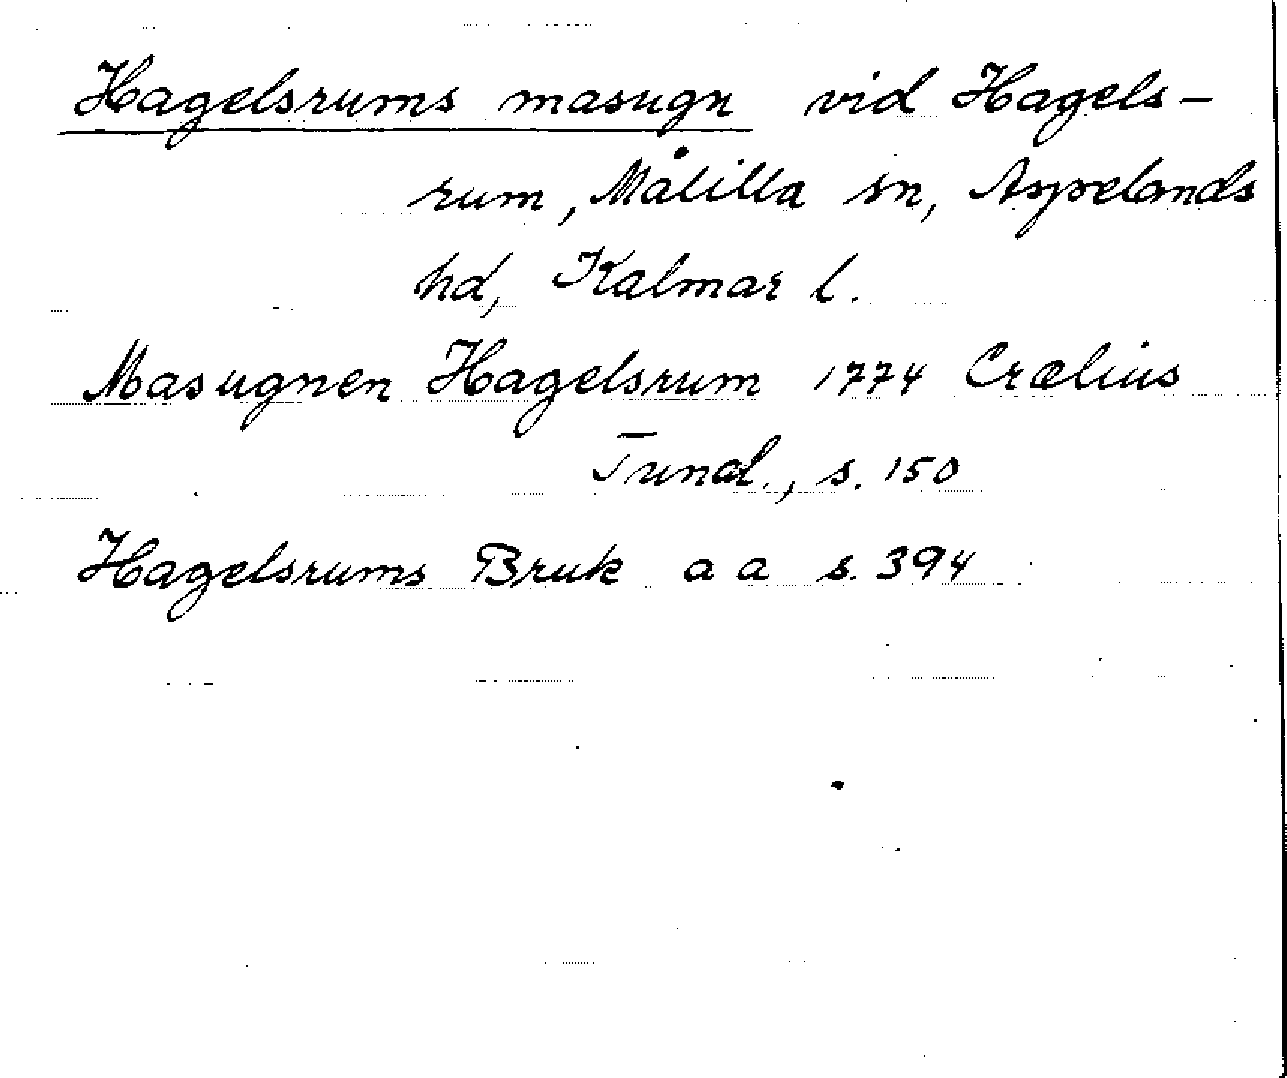 Hagelsrums masugn vid Hagels-
rum, Målilla sn, Aspelands
hd, Kalmar l.
Masugnen Hagelsrum 1774 Crælius
Tund., s. 150
Hagelsrums Bruk a a s. 394